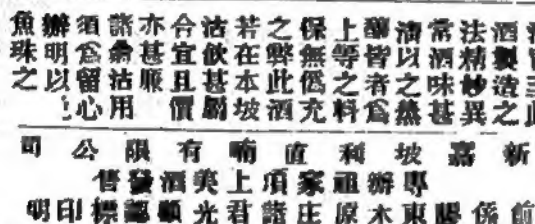 酒製造之
法精妙異
常酒味甚
以之蒸
釀皆者為
上等之料
保無僞充
之弊此酒
若在本坡
沽飲甚
合宜且價
亦甚廉
諸翁沽用
須為留心
辦明以
魚珠之
新嘉坡利直喃有限公司
專辦祖家頂上美酒發售
前係東木原庄諸君光顧認標印明